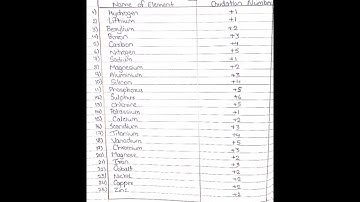 Name of Element Oxidation Number
1) Hydrogen +1
2) Lithium +1
3) Beryllium +2
4) Boron +3
5) Carbon +4
6) Nitrogen +5
7) Sodium +1
8) Magnesium +2
9) Aluminum +3
10) Silicon +4
11) Phosphorus +5
12) Sulphur +6
13) Chlorine +5
14) Potassium +1
15) Calcium +2
16) Scandium +3
17) Titanium +4
18) Vanadium +5
19) Chromium +3
20) +2
21) Iron +3
22) Cobalt +2
23) Nickel +2
24) Copper +2
25) Zinc +2